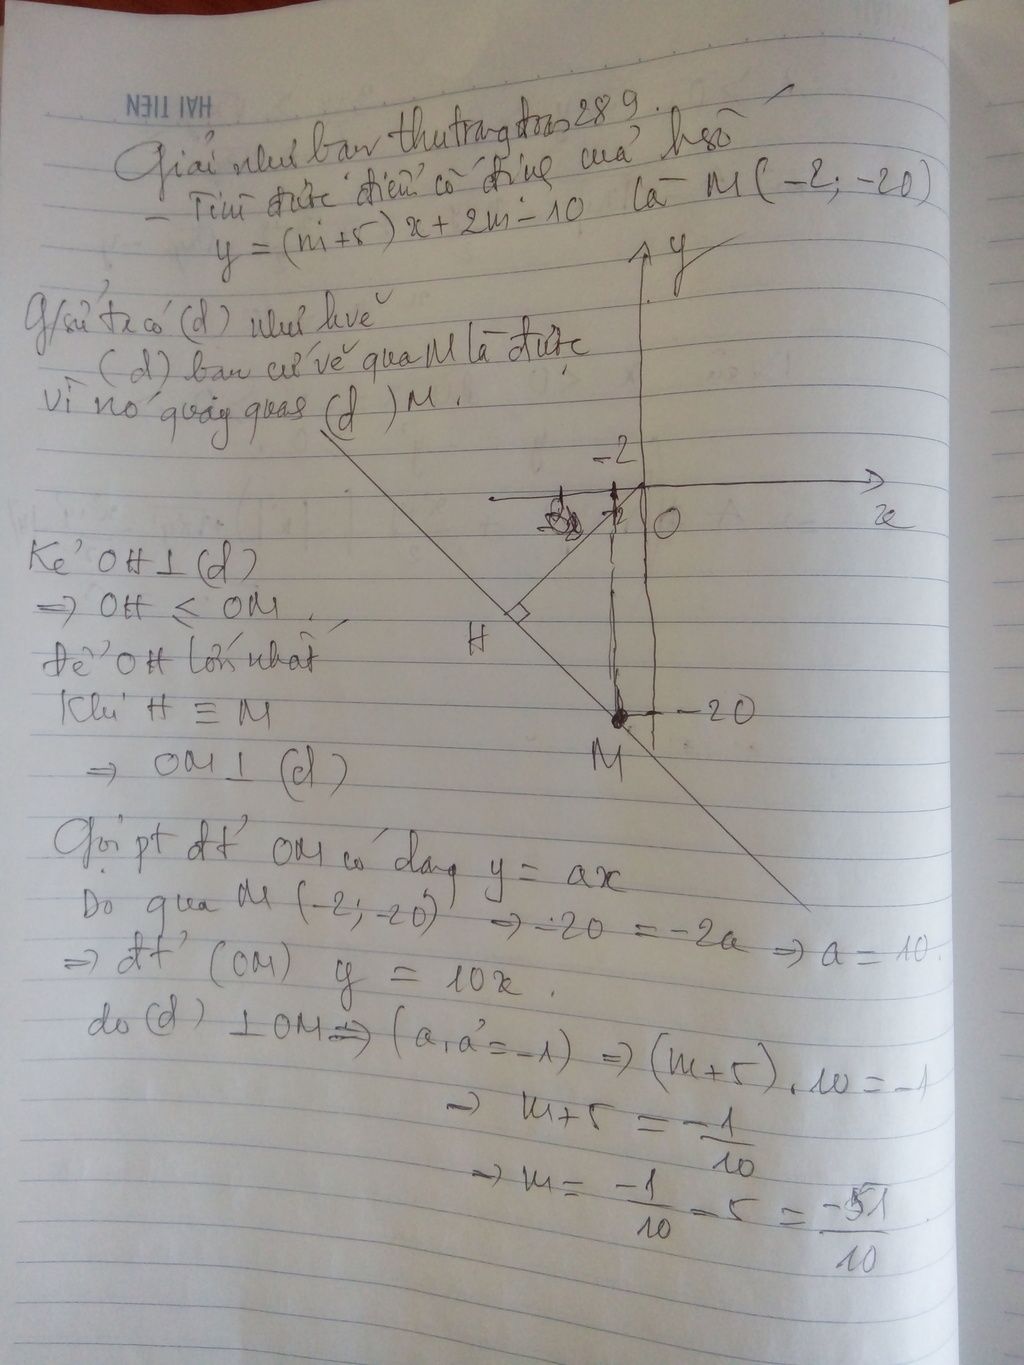 HẢI TIẾN
Giải như bạn thutrang 289.
- Tìm được điểm cố định của hsố
y = (m+5)x + 2m - 10 là M(-2; -20)
G/sử ta có (d) như hvẽ
(d) bạn cứ vẽ qua M là được
vì nó quay quanh (d) M.
y
-2
x
O
Kẻ OH ⊥ (d)
⇒ OH ≤ OM.
H
Để OH lớn nhất
Khi H ≡ M
-20
M
⇒ OM ⊥ (d)
Gọi pt đt' OM có dạng y = ax
Do qua M (-2; -20) ⇒ -20 = -2a ⇒ a = 10.
⇒ đt' (OM) y = 10x.
do (d) ⊥ OM ⇒ (a.a' = -1) ⇒ (m+5).10 = -1
⇒ m+5 = -1/10
⇒ m = -1/10 - 5 = -51/10